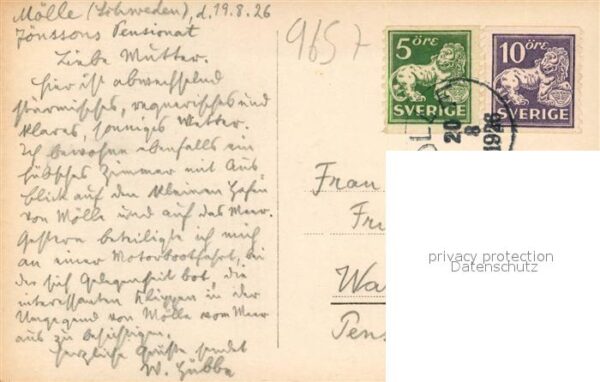 Mölle (Schweden), d. 19.8.26
Jönssons Pensionat
Liebe Mutter.
Hier ist abwechselnd
stürmisches, regnerisches und
klares, sonniges Wetter.
Ich bewohne ebenfalls ein
hübsches Zimmer mit Aus-
blick auf den kleinen Hafen
von Mölle und auf das Meer.
Gestern beteiligte ich mich
an einer Motorbootfahrt, bei
der sich Gelegenheit bot, die
interessanten Klippen in der
Umgegend von Mölle vom Meer
aus zu besichtigen.
Herzliche Grüße sendet
W. Hübbe
9657
5 ÖRE
SVERIGE
10 ÖRE
SVERIGE
20
8
1926
Frau
Fri
Wa
Pens
privacy protection
Datenschutz